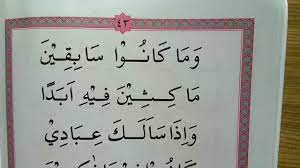 ٤٣
وَمَا كَانُوْا سَابِقِيْنَ
مَاكِثِيْنَ فِيْهِ اَبَدًا
وَاِذَا سَاَلَكَ عِبَادِيْ